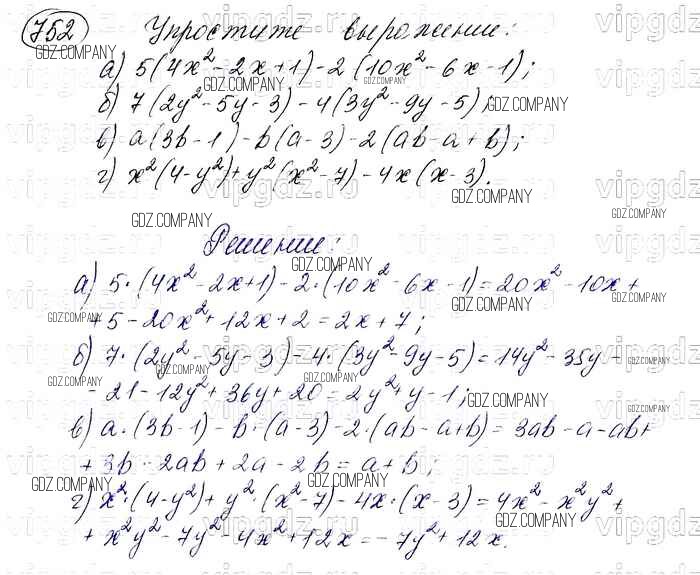 752 Упростите выражение:
а) 5(4x² - 2x + 1) - 2(10x² - 6x - 1);
б) 7(2y² - 5y - 3) - 4(3y² - 9y - 5);
в) a(3b - 1) - b(a - 3) - 2(ab - a + b);
г) x²(4 - y²) + y²(x² - 7) - 4x(x - 3).
Решение:
а) 5·(4x² - 2x + 1) - 2·(10x² - 6x - 1) = 20x² - 10x +
+ 5 - 20x² + 12x + 2 = 2x + 7;
б) 7·(2y² - 5y - 3) - 4·(3y² - 9y - 5) = 14y² - 35y -
- 21 - 12y² + 36y + 20 = 2y² + y - 1;
в) a·(3b - 1) - b·(a - 3) - 2·(ab - a + b) = 3ab - a - ab +
+ 3b - 2ab + 2a - 2b = a + b;
г) x²·(4 - y²) + y²·(x² - 7) - 4x·(x - 3) = 4x² - x²y² +
+ x²y² - 7y² - 4x² + 12x = -7y² + 12x.
GDZ.COMPANY
vipgdz.ru